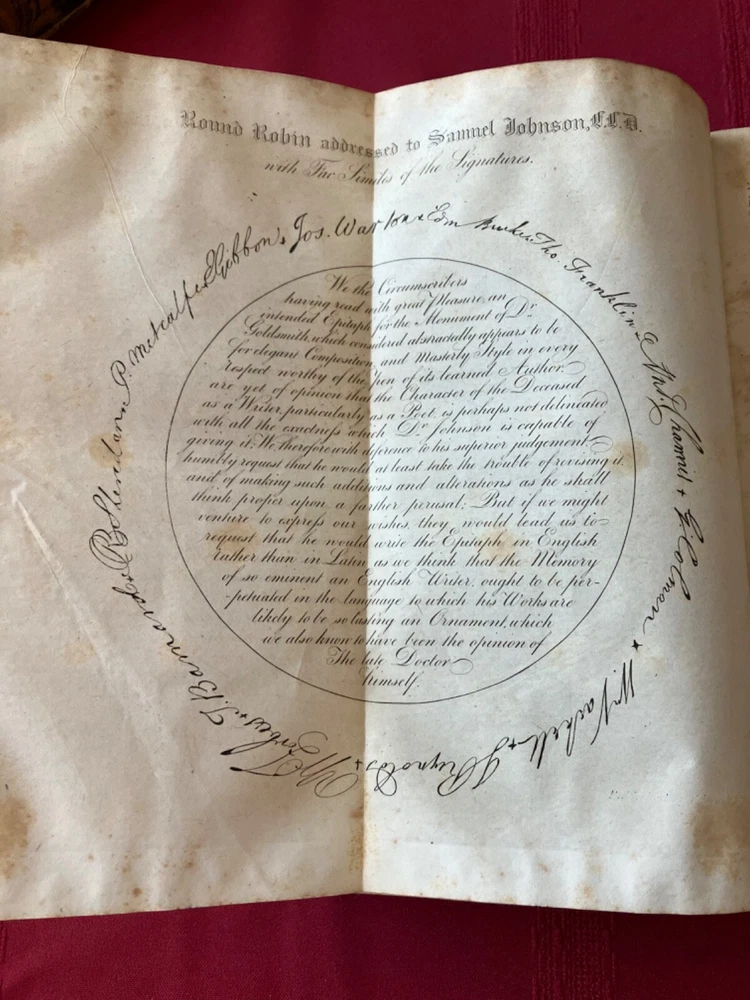 Round Robin addressed to Samuel Johnson, L.L.D.
with Fac Similes of the Signatures.
E Gibbon + Jos. Warton + Edm Burke + Tho. Franklin + Ant. Chamier + G. Colman + Wm. Vachell + J Reynolds + W Forbes + T. Barnard + R B Sheridan + P. Metcalfe +
We the Circumscribers
having read with great Pleasure, an
intended Epitaph for the Monument of Dr.
Goldsmith, which considered abstractedly appears to be
for elegant Composition and Masterly Style in every
respect worthy of the pen of its learned Author,
are yet of opinion that the Character of the Deceased
as a Writer, particularly as a Poet, is perhaps not delineated
with all the exactness which Dr. Johnson is capable of
giving it. We therefore with deference to his superior judgement,
humbly request that he would at least take the trouble of revising it
and of making such additions and alterations as he shall
think proper upon a farther perusal: But if we might
venture to express our wishes, they would lead us to
request that he would write the Epitaph in English
rather than in Latin as we think that the Memory
of so eminent an English Writer, ought to be per-
-petuated in the language to which his Works are
likely to be so lasting an Ornament, which
we also know to have been the opinion of
The late Doctor
himself.